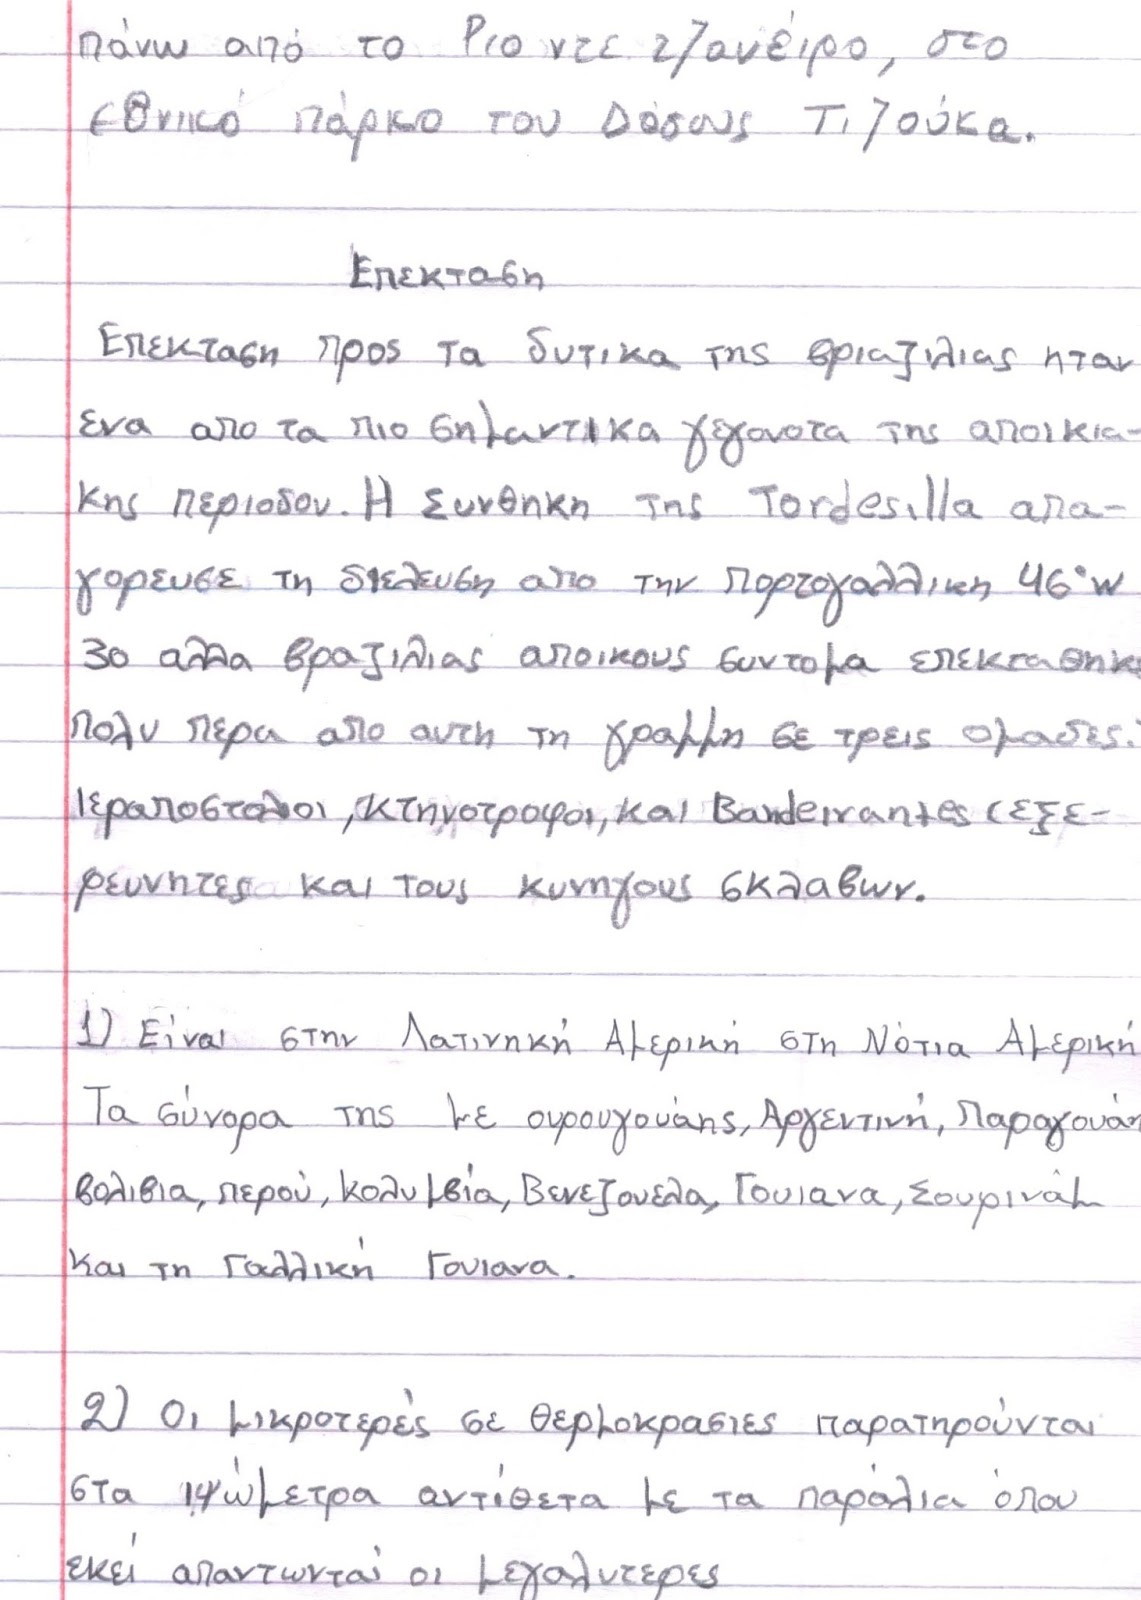 πάνω από το Ριο ντε τζανέιρο, στο
εθνικό πάρκο του Δάσους Τιζούκα.
Επεκταση
Επεκταση προς τα δυτικα της βριαζιλιας ηταν
ενα απο τα πιο σημαντικα γεγονοτα της αποικια-
κης περιοδου. Η Συνθηκη της Tordesilla απα-
γορευσε τη διελευση απο την Πορτογαλλικη 46°w
30 αλλα βραζιλιας αποικους συντομα επεκταθηκε
πολυ περα απο αυτη τη γραμμη σε τρεις ομαδες:
Ιεραποστολοι, κτηνοτροφοι, και Bandeirantes (εξε-
ρευνητες και τους κυνηγους σκλαβων.
1) Είναι στην Λατινηκή Αμερική στη Νότια Αμερική
Τα σύνορα της με ουρουγουάης, Αργεντινή, Παραγουάη
βολιβια, περού, κολυμβία, Βενεζουέλα, Γουιανα, Σουρινάμ
και τη Γαλλική Γουιανα.
2) Οι μικροτερές σε θερμοκρασιες παρατηρούνται
στα ιψώμετρα αντίθετα με τα παράλια όπου
εκεί απαντωνταί οι μεγαλυτερες